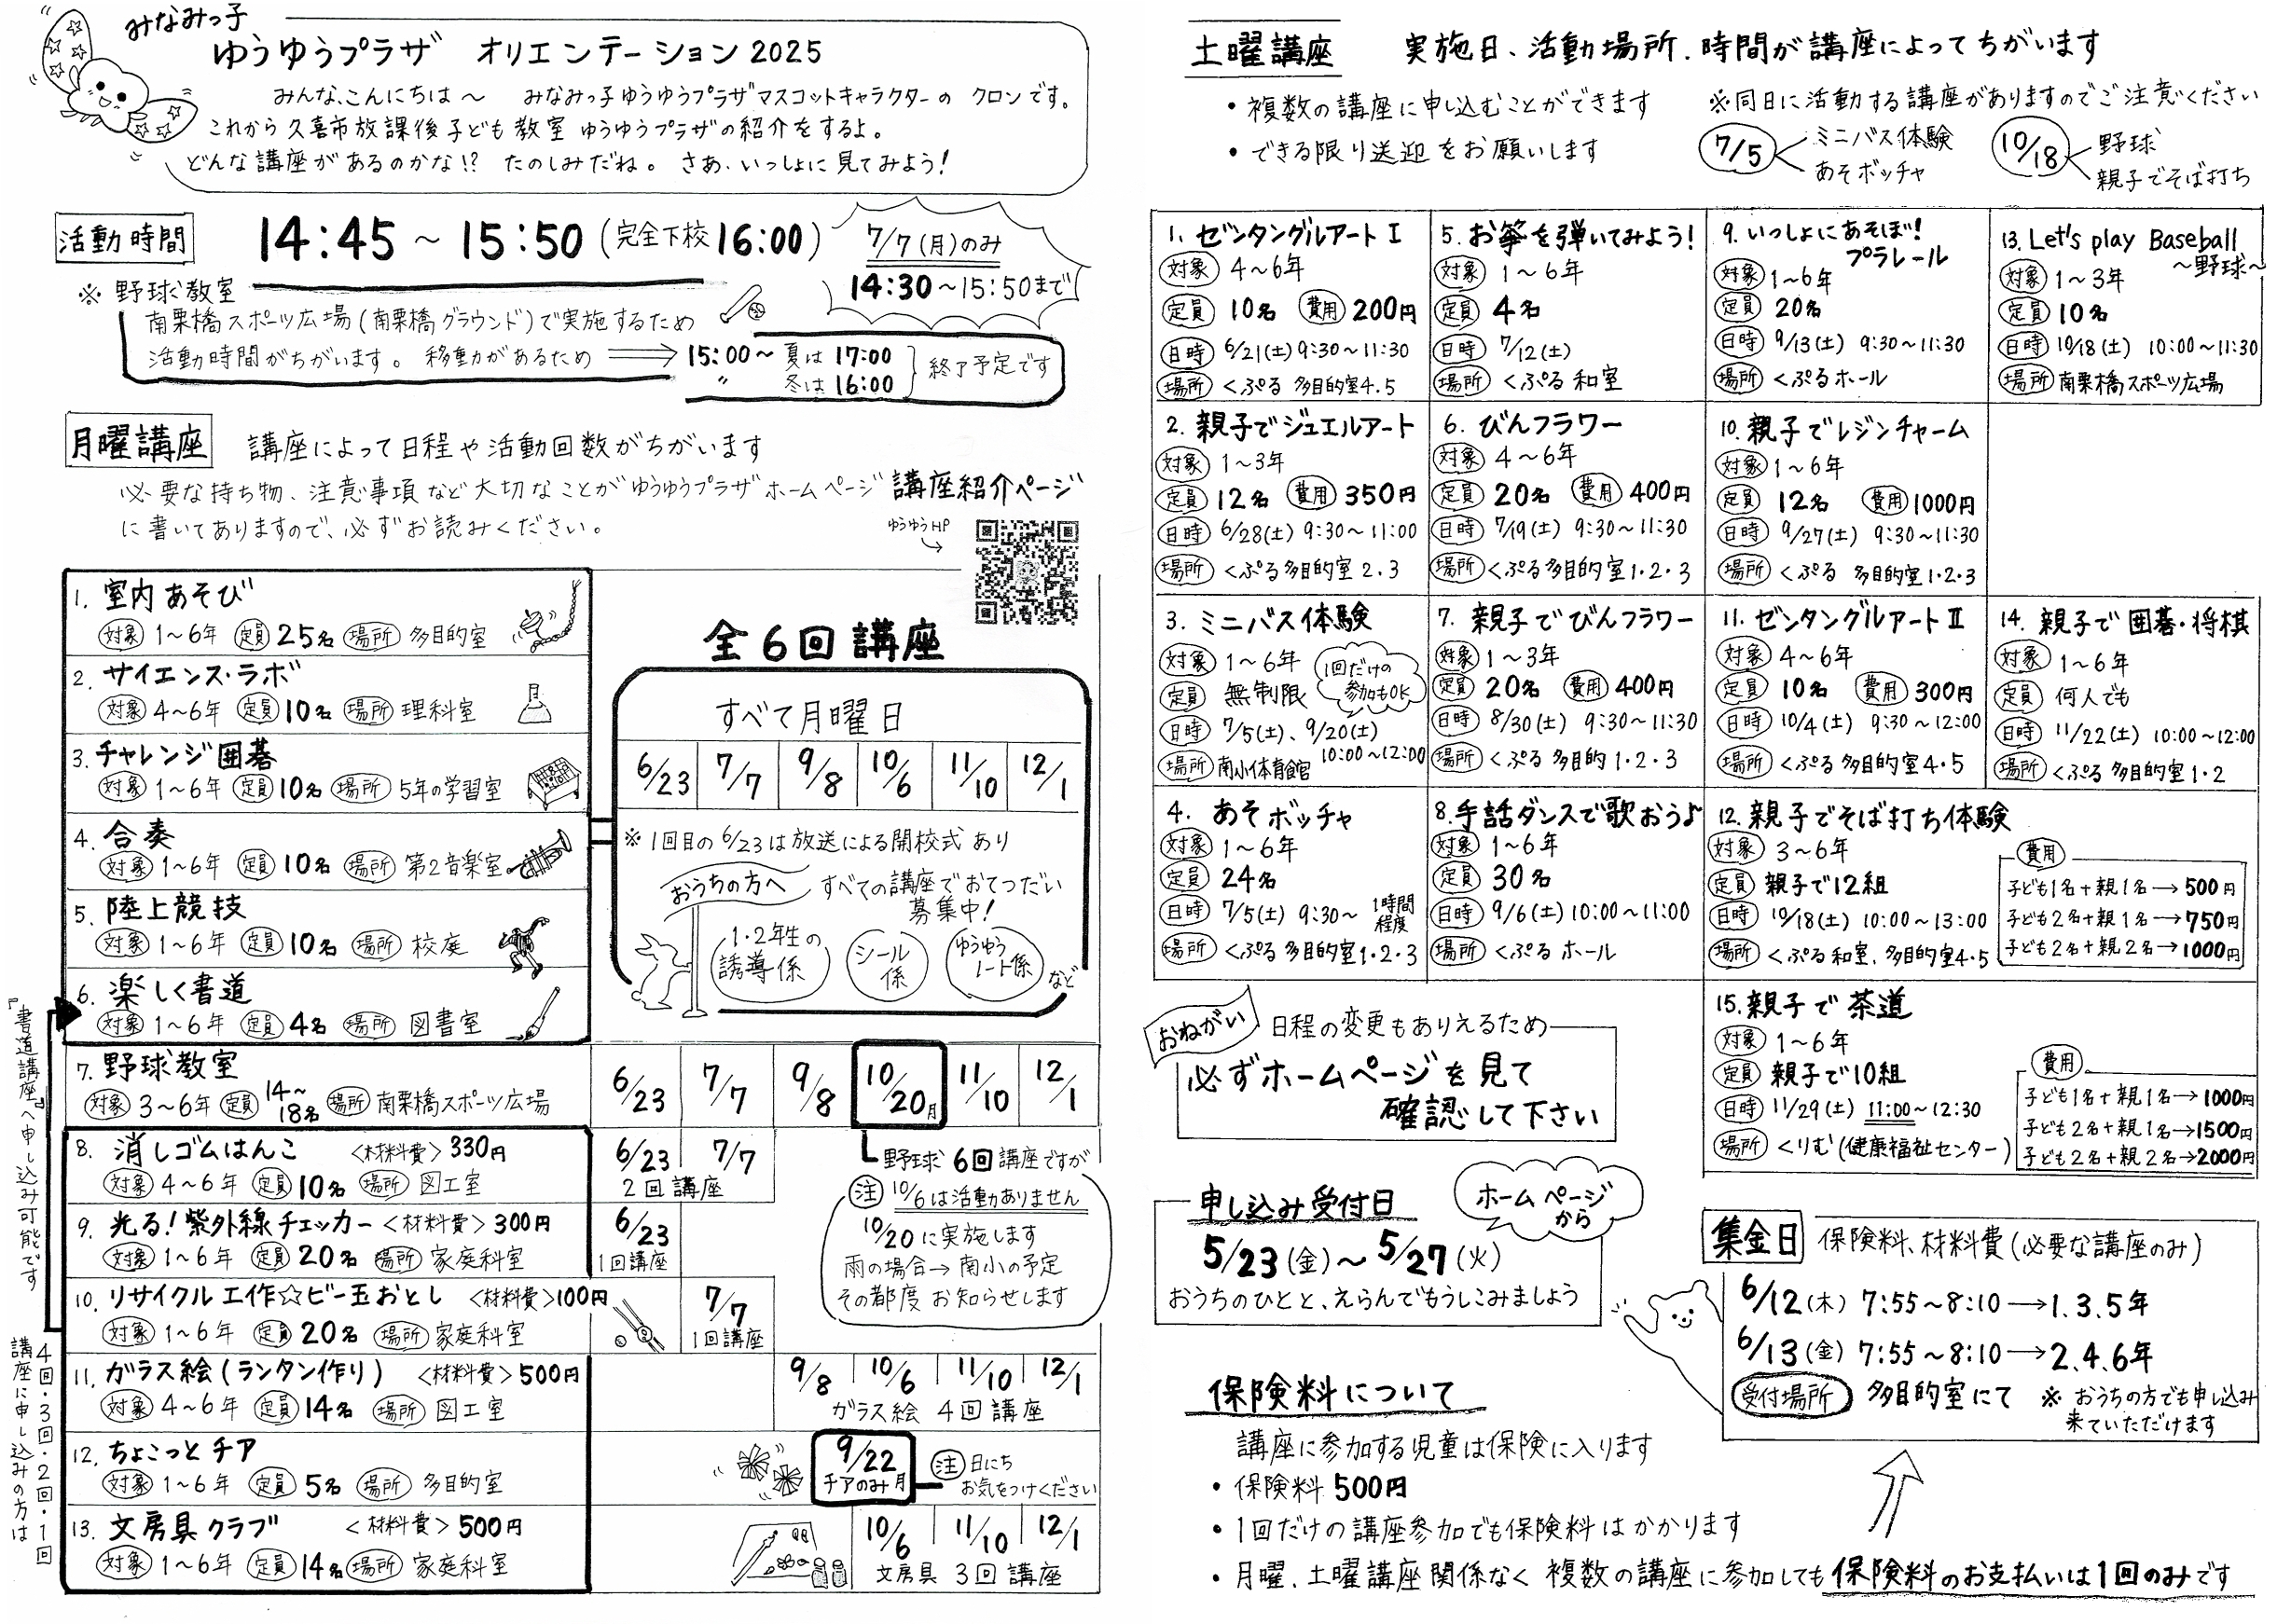 みなみっ子
ゆうゆうプラザ オリエンテーション2025
みんな、こんにちは～ みなみっ子ゆうゆうプラザマスコットキャラクターの クロンです。
これから久喜市放課後子ども教室 ゆうゆうプラザの紹介をするよ。
どんな講座があるのかな!? たのしみだね。 さあ、いっしょに見てみよう!
活動時間 14:45 ～ 15:50 (完全下校16:00)
7/7(月)のみ
14:30～15:50まで
※ 野球教室
南栗橋スポーツ広場(南栗橋グラウンド)で実施するため
活動時間がちがいます。 移動があるため ⟹ 15:00～ 夏は 17:00
〃 冬は 16:00
終了予定です
月曜講座 講座によって日程や活動回数がちがいます
必要な持ち物、注意事項など大切なことがゆうゆうプラザホームページ 講座紹介ページ
に書いてありますので、必ずお読みください。
ゆうゆうHP
1. 室内あそび
対象 1～6年 定員 25名 場所 多目的室
2. サイエンス・ラボ
対象 4～6年 定員 10名 場所 理科室
3. チャレンジ囲碁
対象 1～6年 定員 10名 場所 5年の学習室
4. 合奏
対象 1～6年 定員 10名 場所 第2音楽室
5. 陸上競技
対象 1～6年 定員 10名 場所 校庭
6. 楽しく書道
対象 1～6年 定員 4名 場所 図書室
全6回講座
すべて月曜日
6/23 7/7 9/8 10/6 11/10 12/1
※ 1回目の6/23は放送による開校式あり
おうちの方へ すべての講座でおてつだい
募集中!
1・2年生の
誘導係
シール
係
ゆうゆう
ノート係
など
7. 野球教室
対象 3～6年 定員 14～
18名 場所 南栗橋スポーツ広場
6/23 7/7 9/8 10/20月 11/10 12/1
野球 6回講座ですが
注 10/6は活動ありません
10/20に実施します
雨の場合→南小の予定
その都度 お知らせします
8. 消しゴムはんこ <材料費>330円
対象 4～6年 定員 10名 場所 図工室
6/23 7/7
2回講座
9. 光る!紫外線チェッカー <材料費>300円
対象 1～6年 定員 20名 場所 家庭科室
6/23
1回講座
10. リサイクル工作☆ビー玉おとし <材料費>100円
対象 1～6年 定員 20名 場所 家庭科室
7/7
1回講座
11. ガラス絵(ランタン作り) <材料費>500円
対象 4～6年 定員 14名 場所 図工室
9/8 10/6 11/10 12/1
ガラス絵 4回講座
12. ちょこっとチア
対象 1～6年 定員 5名 場所 多目的室
9/22
チアのみ月
注 日にち
お気をつけください
13. 文房具クラブ <材料費>500円
対象 1～6年 定員 14名 場所 家庭科室
10/6 11/10 12/1
文房具 3回講座
4回・3回・2回・1回
講座に申し込みの方は
『書道講座』へ申し込み可能です
土曜講座 実施日、活動場所、時間が講座によってちがいます
・複数の講座に申し込むことができます
・できる限り送迎をお願いします
※同日に活動する講座がありますのでご注意ください
7/5 ミニバス体験
あそボッチャ
10/18 野球
親子でそば打ち
1. ゼンタングルアートⅠ
対象 4～6年
定員 10名 費用 200円
日時 6/21(土) 9:30～11:30
場所 くぷる 多目的室4.5
5. お箏を弾いてみよう!
対象 1～6年
定員 4名
日時 7/12(土)
場所 くぷる 和室
9. いっしょにあそぼ!
プラレール
対象 1～6年
定員 20名
日時 9/13(土) 9:30～11:30
場所 くぷるホール
13. Let's play Baseball
～野球～
対象 1～3年
定員 10名
日時 10/18(土) 10:00～11:30
場所 南栗橋スポーツ広場
2. 親子でジュエルアート
対象 1～3年
定員 12名 費用 350円
日時 6/28(土) 9:30～11:00
場所 くぷる多目的室2.3
6. びんフラワー
対象 4～6年
定員 20名 費用 400円
日時 7/19(土) 9:30～11:30
場所 くぷる多目的室1・2・3
10. 親子でレジンチャーム
対象 1～6年
定員 12名 費用 1000円
日時 9/27(土) 9:30～11:30
場所 くぷる 多目的室1・2・3
3. ミニバス体験
対象 1～6年
1回だけの
参加もOK
定員 無制限
日時 7/5(土)、9/20(土)
10:00～12:00
場所 南小体育館
7. 親子でびんフラワー
対象 1～3年
定員 20名 費用 400円
日時 8/30(土) 9:30～11:30
場所 くぷる 多目的1・2・3
11. ゼンタングルアートⅡ
対象 4～6年
定員 10名 費用 300円
日時 10/4(土) 9:30～12:00
場所 くぷる多目的室4・5
14. 親子で囲碁・将棋
対象 1～6年
定員 何人でも
日時 11/22(土) 10:00～12:00
場所 くぷる多目的室1・2
4. あそボッチャ
対象 1～6年
定員 24名
日時 7/5(土) 9:30～ 1時間
程度
場所 くぷる 多目的室1・2・3
8. 手話ダンスで歌おう♪
対象 1～6年
定員 30名
日時 9/6(土) 10:00～11:00
場所 くぷる ホール
12. 親子でそば打ち体験
対象 3～6年
定員 親子で12組
日時 10/18(土) 10:00～13:00
場所 くぷる和室、多目的室4・5
費用
子ども1名+親1名→500円
子ども2名+親1名→750円
子ども2名+親2名→1000円
15. 親子で茶道
対象 1～6年
定員 親子で10組
日時 11/29(土) 11:00～12:30
場所 くりむ(健康福祉センター)
費用
子ども1名+親1名→1000円
子ども2名+親1名→1500円
子ども2名+親2名→2000円
おねがい 日程の変更もありえるため
必ずホームページを見て
確認して下さい
申し込み受付日
ホームページ
から
5/23(金)～5/27(火)
おうちのひとと、えらんでもうしこみましょう
集金日 保険料、材料費(必要な講座のみ)
6/12(木) 7:55～8:10→1.3.5年
6/13(金) 7:55～8:10→2.4.6年
受付場所 多目的室にて ※ おうちの方でも申し込み
来ていただけます
保険料について
講座に参加する児童は保険に入ります
・保険料500円
・1回だけの講座参加でも保険料はかかります
・月曜、土曜講座関係なく 複数の講座に参加しても保険料のお支払いは1回のみです